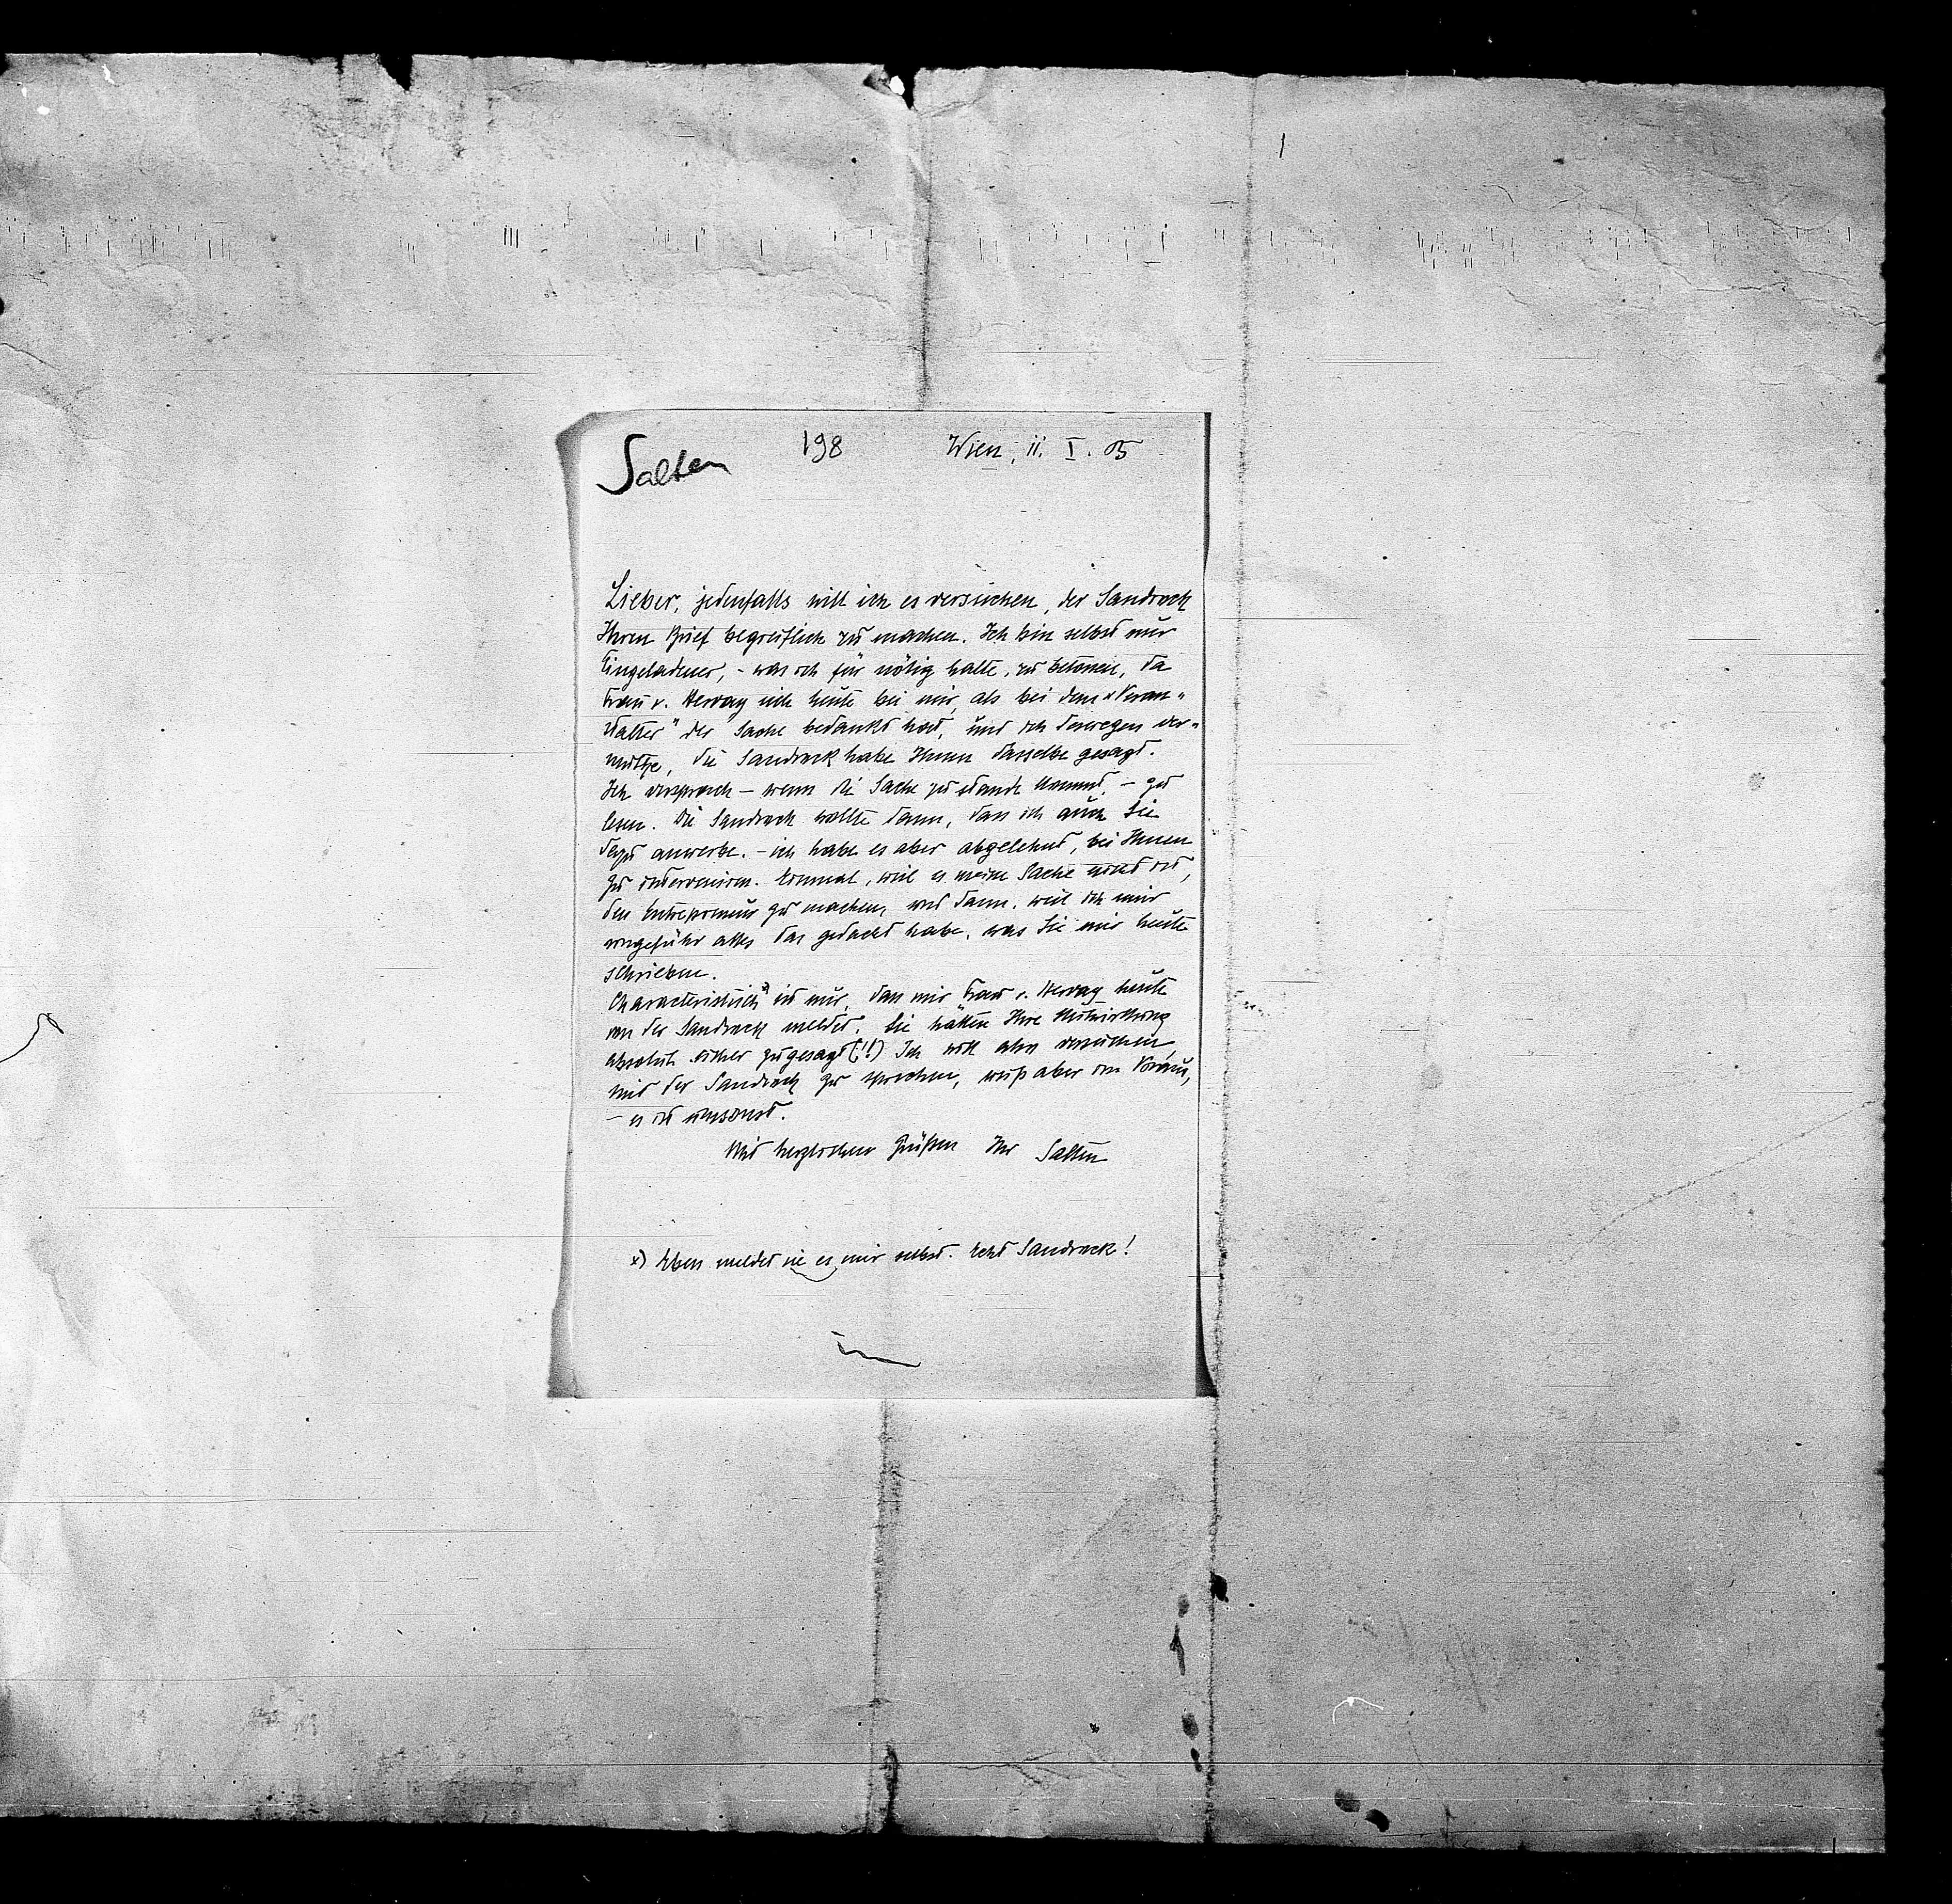 Salten
198
Wien, 11. I. 05
Lieber, jedenfalls will ich es versuchen, der Sandrock
Ihren Brief begreiflich zu machen. Ich bin selbst nur
Eingeladener, – was ich für nötig halte, zu betonen, da
Frau v. Hervay sich heute bei mir, als bei dem „Veran-
stalter" der Sache bedankt hat, und ich deswegen ver-
muthe, die Sandrock habe Ihnen dasselbe gesagt.
Ich versprach – wenn die Sache zu stande kommt, – zu
lesen. Die Sandrock wollte dann, dass ich auch Sie
dazu anwerbe. – ich habe es aber abgelehnt, bei Ihnen
zu interveniren. Einmal, weil es meine Sache nicht ist,
den Entrepreneur zu machen, und dann, weil ich mir
ungefähr alles das gedacht habe, was Sie mir heute
schrieben.
Characteristisch x) ist nur, dass mir Frau v. Hervay heute
von der Sandrock meldet, Sie hätten Ihre Mitwirkung
absolut sicher zugesagt (!!) Ich will also versuchen,
mit der Sandrock zu sprechen, weiß aber im Voraus,
– es ist umsonst.
Mit herzlichen Grüßen Ihr Salten
x) Eben meldet sie es mir selbst. Echt Sandrock!